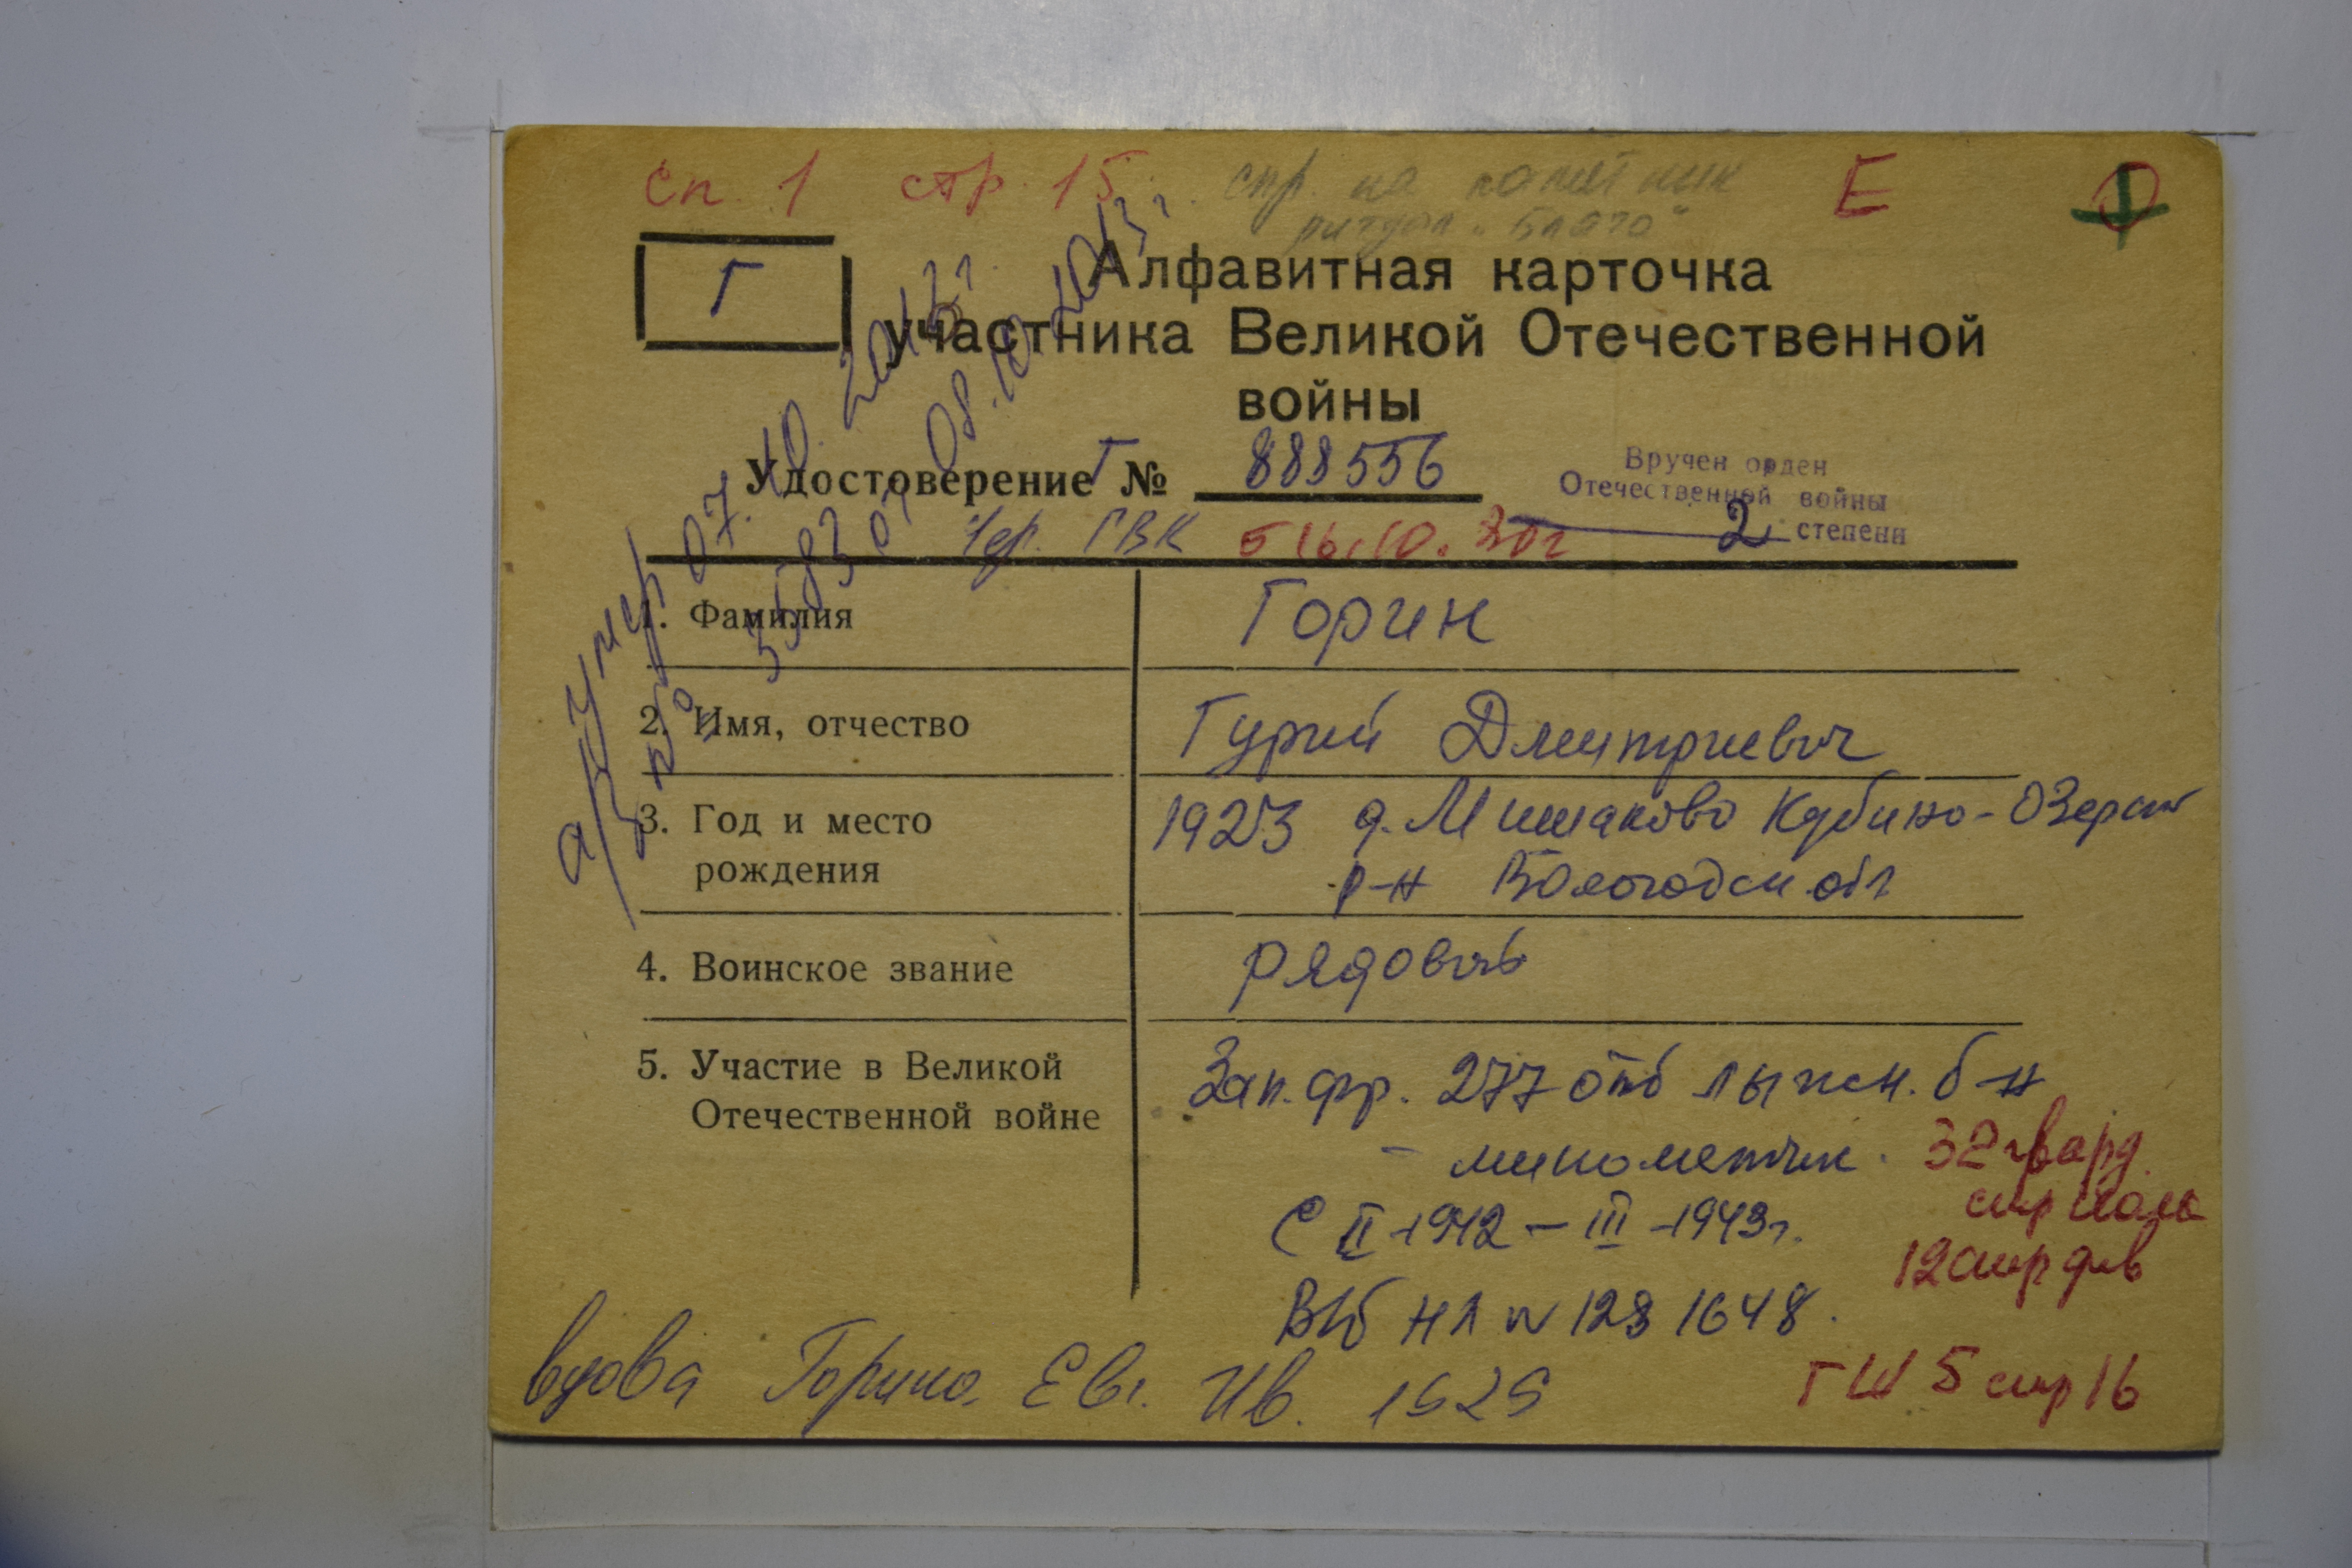 сп. 1 стр. 15. стр. на памятник Е
ритуал "Благо"
Г
Алфавитная карточка
участника Великой Отечественной
войны
Удостоверение Г № 888556
Вручен орден
Отечественной войны
2 степени
Чер. ГВК
умер 07.10.2013г.
08.10.2013г.
1. Фамилия Горин
2. Имя, отчество Гурий Дмитриевич
3. Год и место рождения 1923 д. Мишаково Кубино-Озерск
р-н Вологодск обл
4. Воинское звание рядовой
5. Участие в Великой Отечественной войне Зап. фр. 277 отд лыжн. б-н
- минометчик. 32 гвард.
стр полк
С II-1942 – III-1943г. 12 стр див
ВБ НЛ № 1281648.
вдова Горина Евг. Ив. 1929
ГШ 5 стр 16